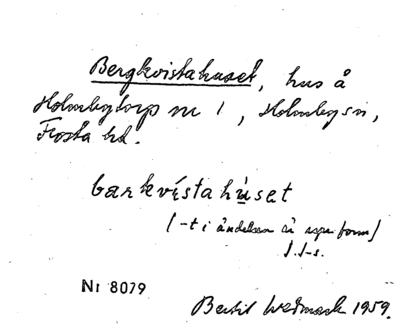 Bergkvistahuset, hus å
Holmbytorp nr 1, Holmby sn,
Frosta hd.
barkvístahùset
(-t i ändelsen är
form)
Nr 8079
Bertil 1959.